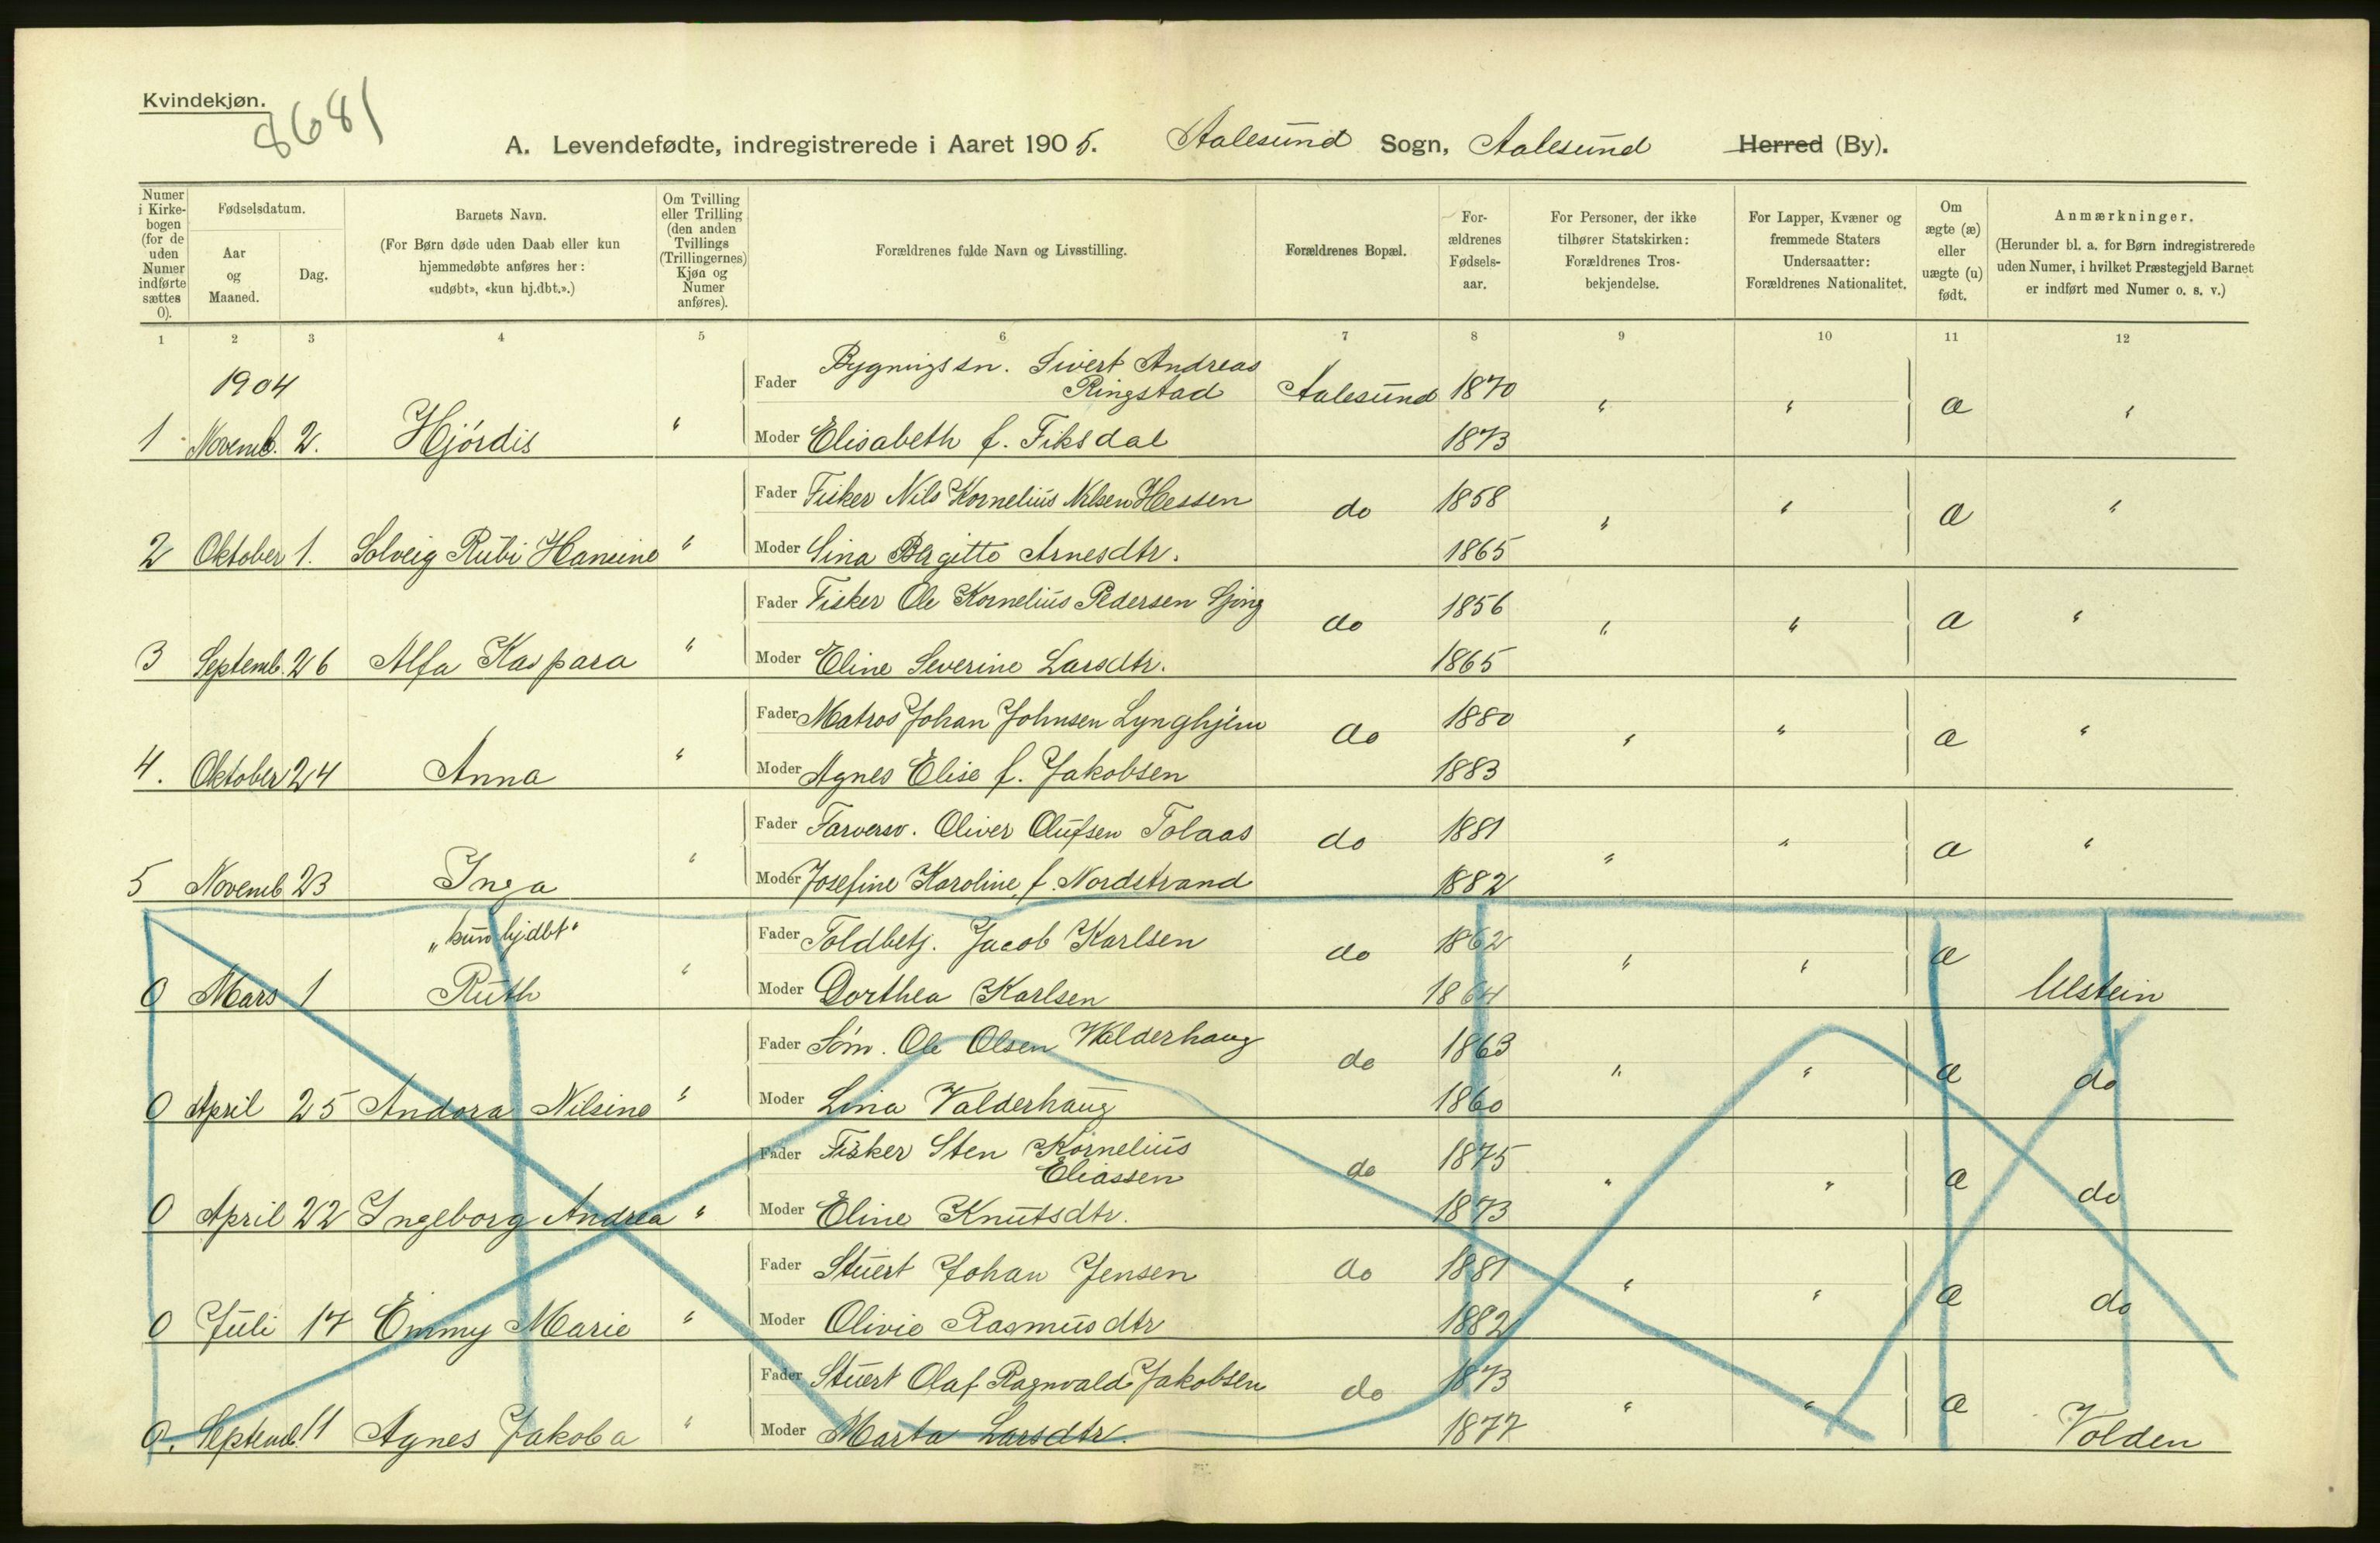 Kvindekjøn.
8681
A. Levendefødte, indregistrerede i Aaret 1905. Aalesund Sogn, Aalesund Herred (By).
Numer i Kirkebogen (for de uden Numer indførte sættes 0).
Fødselsdatum.
Aar og Maaned.
Dag.
Barnets Navn.
(For Børn døde uden Daab eller kun hjemmedøbte anføres her: «udøbt», «kun hj.dbt.».)
Om Tvilling eller Trilling (den anden Tvillings (Trillingernes) Kjøn og Numer anføres).
Forældrenes fulde Navn og Livsstilling.
Forældrenes Bopæl.
Forældrenes Fødselsaar.
For Personer, der ikke tilhører Statskirken: Forældrenes Trosbekjendelse.
For Lapper, Kvæner og fremmede Staters Undersaatter: Forældrenes Nationalitet.
Om ægte (æ) eller uægte (u) født.
Anmærkninger.
(Herunder bl. a. for Børn indregistrerede uden Numer, i hvilket Præstegjeld Barnet er indført med Numer o. s. v.)
1 2 3 4 5 6 7 8 9 10 11 12
1904
Fader Bygnings sn. Sivert Andreas Ringstad Aalesund 1870 " " æ "
1 Novemb. 2. Hjórdis " Moder Elisabeth f. Fiksdal 1873
Fader Fisker Nils Kornelius Nilsen Hessen do 1858 " " æ "
2 Oktober 1. Solveig Rubi Hansine " Moder Sina Birgitte Arnesdtr. 1865
Fader Fisker Ole Kornelius Pedersen do 1856 " " æ "
3 Septemb. 26 Alfa Kaspara " Moder Eline Severine Larsdtr. 1865
Fader Matros Johan Johnsen Lynghjem do 1880 " " æ "
4. Oktober 24 Anna " Moder Agnes Elise f. Jakobsen 1883
Fader Farversv. Oliver Olufsen Tolaas do 1881 " " æ "
5 Novemb 23 Inga " Moder Josefine Karoline, f. Nordstrand 1882
„kun hjdbt" Fader Toldbetj. Jacob Karlsen do 1862 " " æ
0 Mars 1 Ruth " Moder Dorthea Karlsen 1864 Ulstein
Fader Sóm. Ole Olsen Walderhaug do 1863 " " æ do
0 April 25 Andora Nilsine " Moder Lina Valderhaug 1860
Fader Fisker Sten Kornelius Eliassen do 1875 " " æ do
0 April 22 Ingeborg Andrea " Moder Eline Knutsdtr. 1873
Fader Stuert Johan Jensen do 1881 " " æ do
0 Juli 17 Emmy Marie " Moder Olivie Rasmusdtr 1882
Fader Stuert Olaf Ragnvald Jakobsen do 1873 " " æ
0. Septemb. 11 Agnes Jakoba " Moder Marta Larsdtr. 1877 Volden